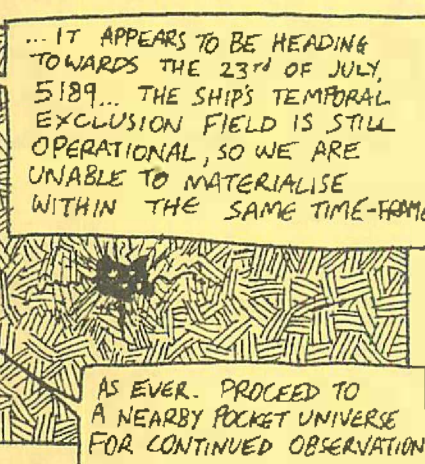 ... IT APPEARS TO BE HEADING
TOWARDS THE 23rd OF JULY,
5189... THE SHIP'S TEMPORAL
EXCLUSION FIELD IS STILL
OPERATIONAL, SO WE ARE
UNABLE TO MATERIALISE
WITHIN THE SAME TIME-FRAME
AS EVER. PROCEED TO
A NEARBY POCKET UNIVERSE
FOR CONTINUED OBSERVATION